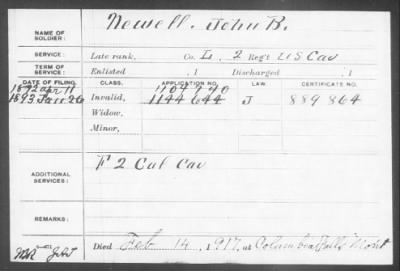 NAME OF SOLDIER: Newell. John B.
SERVICE: Late rank, Co. L, 2 Reg't U S Cav
TERM OF SERVICE: Enlisted , 1 Discharged , 1
DATE OF FILING. CLASS. APPLICATION NO. LAW. CERTIFICATE NO.
1892 Apr 11 1104740
1893 Jan 26 Invalid, 1144644 J 889864
Widow,
Minor,
ADDITIONAL SERVICES: F 2 Cal Cav
REMARKS:
Died Feb 14, 1917, at Columbia Falls Mont